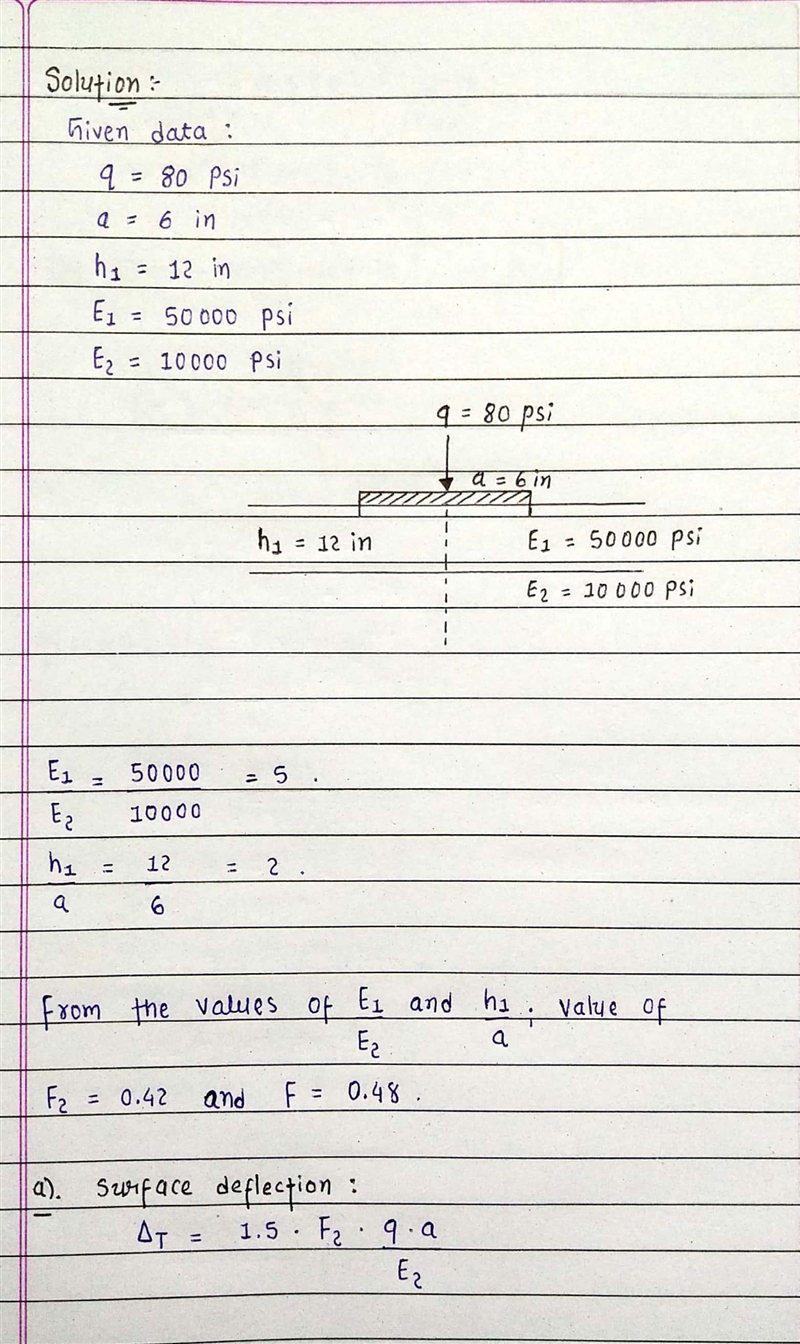 Solution :-
Given data :
q = 80 psi
a = 6 in
h1 = 12 in
E1 = 50000 psi
E2 = 10000 psi
q = 80 psi
a = 6 in
h1 = 12 in
E1 = 50000 psi
E2 = 10000 psi
E1/E2 = 50000/10000 = 5 .
h1/a = 12/6 = 2 .
From the values of E1/E2 and h1/a ; value of
F2 = 0.42 and F = 0.48 .
a). Surface deflection :
ΔT = 1.5 · F2 · q·a/E2